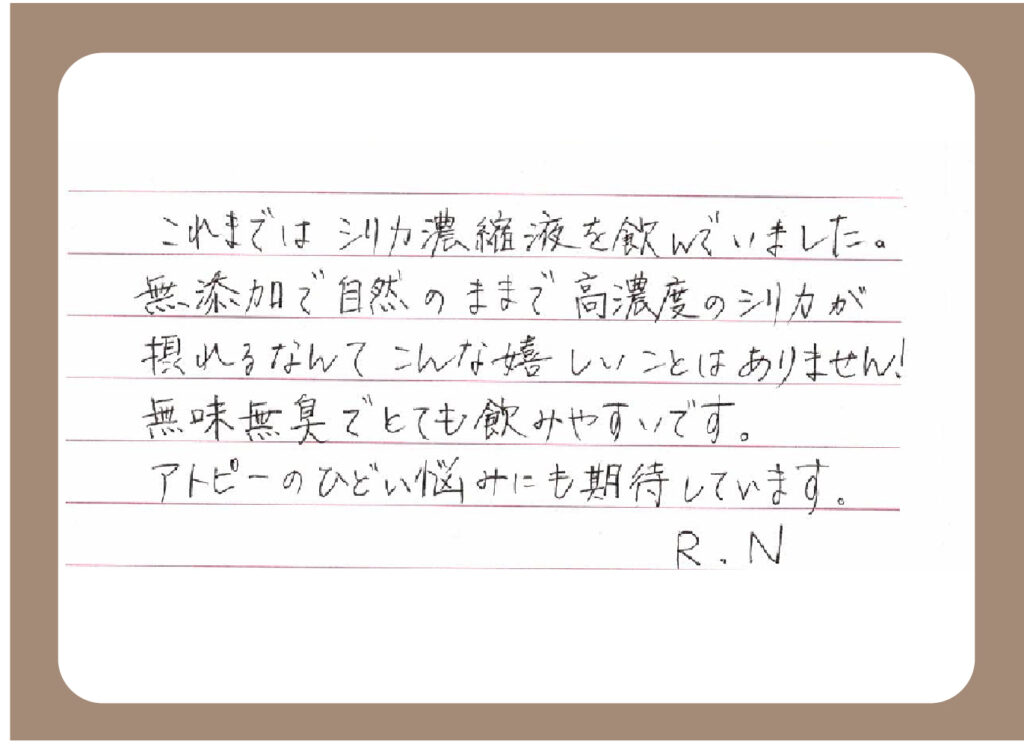 これまでは シリカ濃縮液を飲んでいました。
無添加で自然のままで高濃度のシリカが
摂れるなんて こんな嬉しいことはありません!
無味無臭でとても飲みやすいです。
アトピーのひどい悩みにも期待しています。
R.N